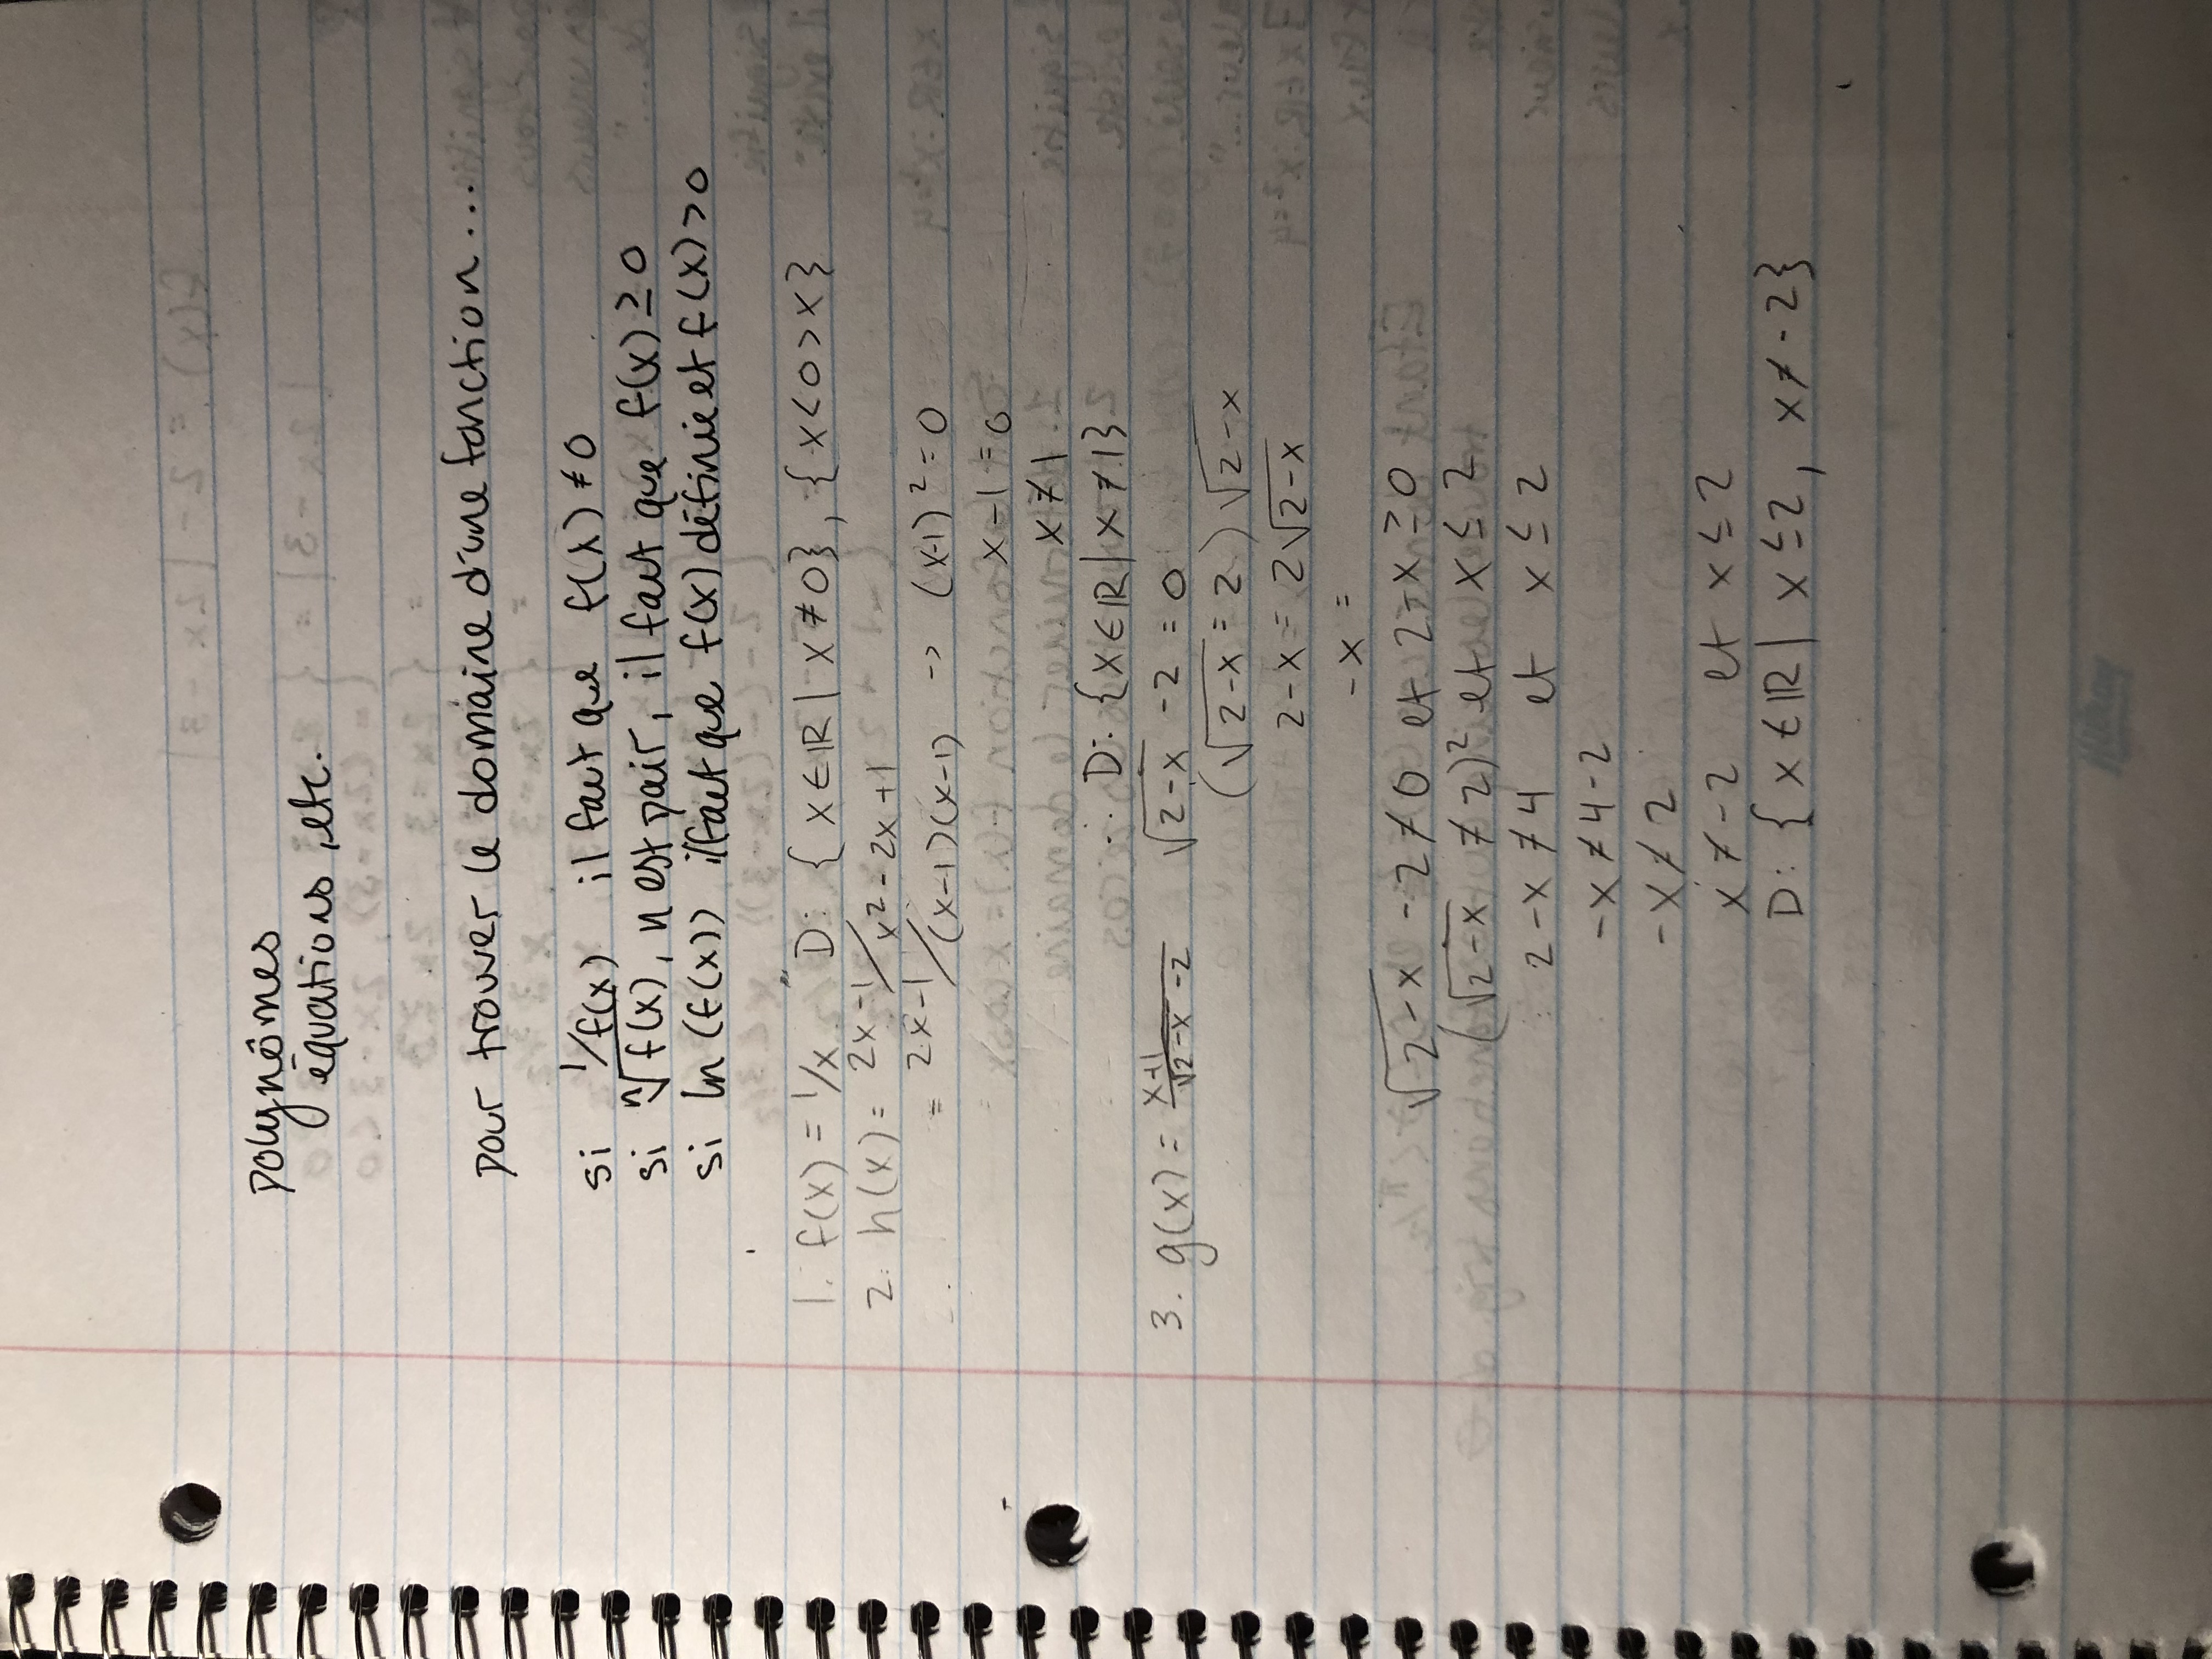 polynômes
équations, etc.
pour trouver le domaine d'une fonction...
si 1/f(x) il faut que f(x) ≠ 0
si ⁿ√f(x), n est pair, il faut que f(x) ≥ 0
si ln(f(x)) il faut que f(x) définie et f(x) > 0
1. f(x) = 1/x D: {x ∈ ℝ | x ≠ 0}, {x < 0 > x}
2. h(x) = 2x-1/x²-2x+1
= 2x-1/(x-1)(x-1) -> (x-1)² = 0
x-1 = 0
x ≠ 1
∴ D: {x ∈ ℝ | x ≠ 1}
3. g(x) = x+1/√2-x -2 √2-x -2 = 0
(√2-x = 2) √2-x
2-x = 2√2-x
-x =
√2-x -2 ≠ 0 et 2-x ≥ 0
(√2-x ≠ 2)² et x ≤ 2
2-x ≠ 4 et x ≤ 2
-x ≠ 4-2
-x ≠ 2
x ≠ -2 et x ≤ 2
D: {x ∈ ℝ | x ≤ 2, x ≠ -2}